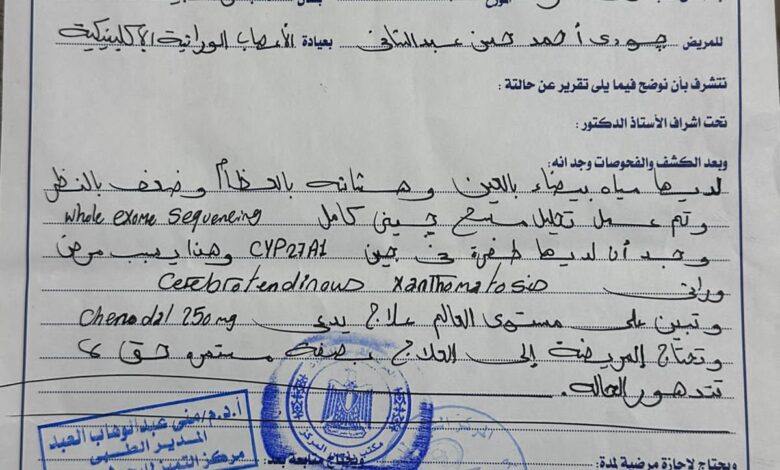 للمريض جودى أحمد حسن عبد بعيادة الأعصاب الوراثية الإكلينيكية
نتشرف بأن نوضح فيما يلى تقرير عن حالتة :
تحت اشراف الأستاذ الدكتور :
وبعد الكشف والفحوصات وجد انه :
لديها مياه بيضاء بالعين وهشاشه بالعظام وضعف بالنظر
وتم عمل تحليل مسح جينى كامل whole exome sequencing
وجد أن لديها طفرة فى جين CYP27A1 وهذا يسبب مرض
وراثى Cerebrotendinous xanthomatosis
وتبين على مستوى العالم علاج يدعى Chenodal 250mg
وتحتاج المريضة إلى العلاج بصفه مستمره حتى لا
تتدهور الحاله.
أ.د.م/منى عبدالوهاب العبد
المدير الطبى
مركز التميز
ويحتاج متابعة بعد:
ويحتاج لاجازة مرضية لمدة: